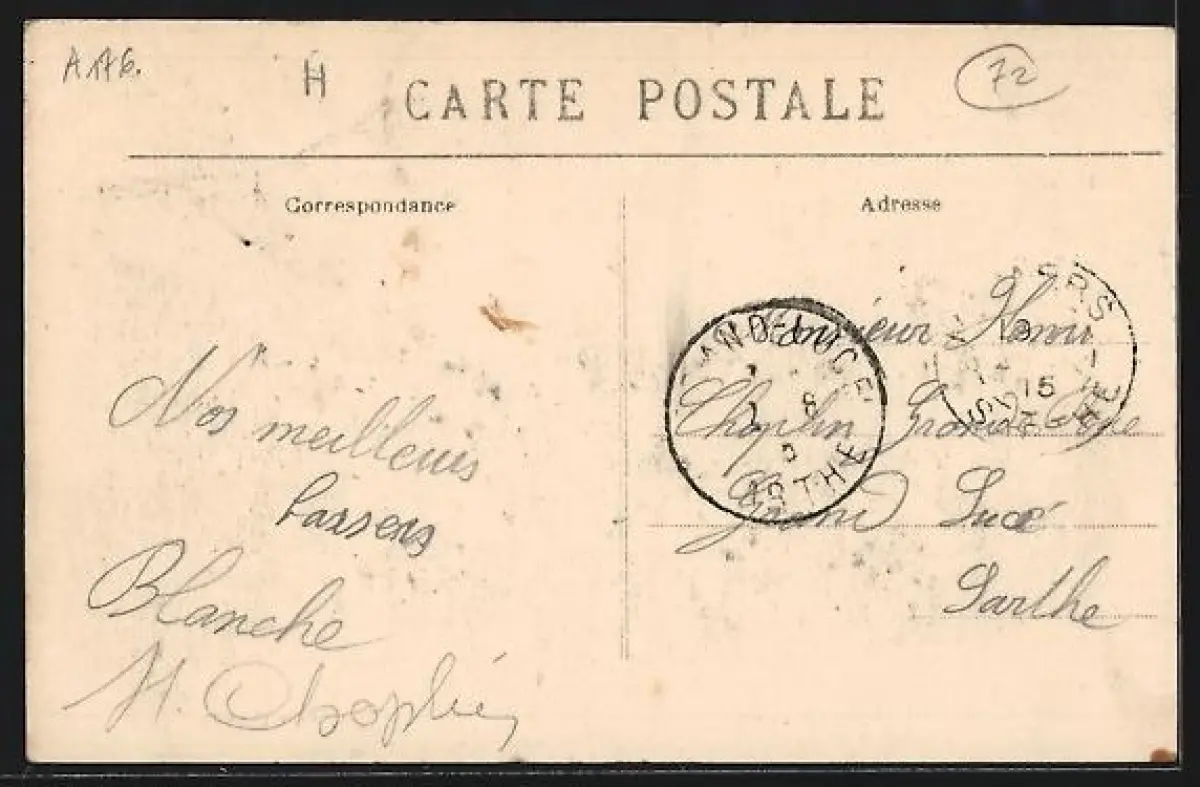 A176.
H
CARTE POSTALE
72
Correspondance
Adresse
Nos meilleurs
Baisers
Blanche
H. Choplin
Monsieur Henri
Choplin Grande Rue
Grand Lucé
Sarthe
SARTHE
15